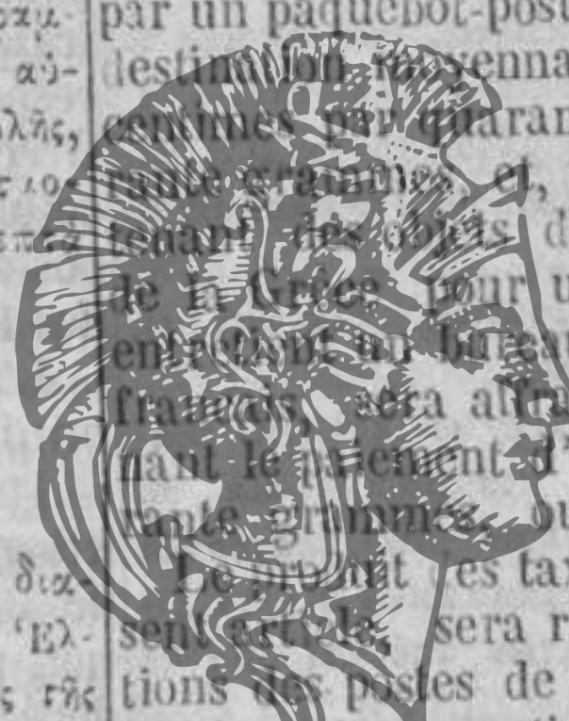 par un paquebot-post
αὐ-
destination moyenna
centimes par quaran
rante grammes et,
tenant des objets d
de la Grèce pour u
entretient un bureau
français, sera affra
nant le paiement d'
rante grammes, ou
δια-
Le produit des tax
Ἑλ-
sent article, sera r
ς τῆς
tions des postes de